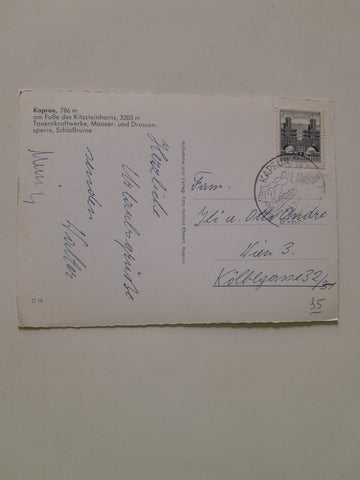 Kaprun, 786 m
am Fuße des Kitzsteinhorns, 3203 m
Tauernkraftwerke, Mooser- und Drossen-
sperre, Schloßruine
Herzliche
Urlaubsgrüße
senden
Walter
Aufnahme und Verlag: Foto Helmut Ekhart, Kaprun
Fam.
Ili u. Otto Andre
Wien 3.
Kölblgasse 32/
35
C 16
KAPRUN